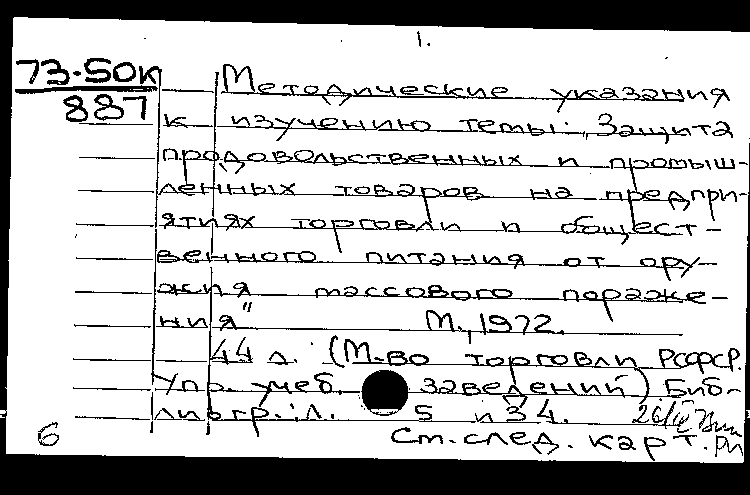 1.
73-50к
887
Методические указания
к изучению темы: „Защита
продовольственных и промыш-
ленных товаров на предпри-
ятиях торговли и общест-
венного питания от ору-
жия массового пораже-
ния" М., 1972.
44 л. (М-во торговли РСФСР.
Упр. учеб. заведений) Биб-
лиогр.: л. 5 и 34.
6
См. след. карт.